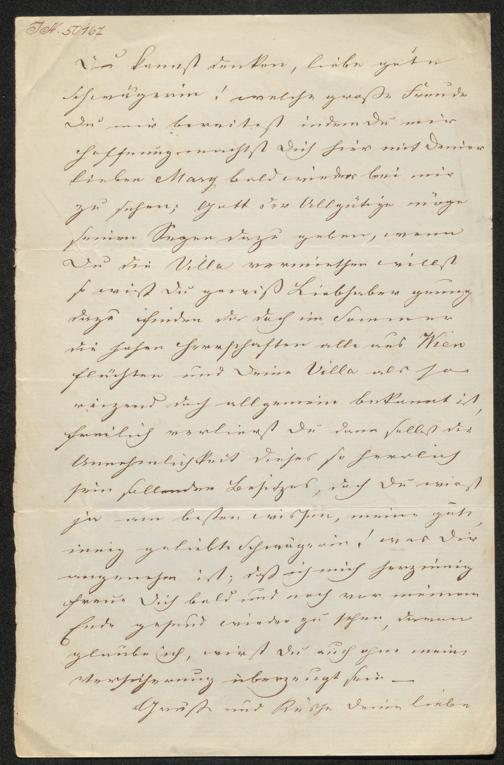 J.N. 50167
Du kannst denken, liebe gute
Schwägerin! welche große Freude
Du mir bereitest indem Du mir
Hoffnung machst Dich hier mit Deiner
lieben Mary bald wieder bei mir
zu sehen; Gott der Allgütige möge
seinen Segen dazu geben, wenn
Du die Villa vermiethen willst
so wirst Du gewiß Liebhaber genug
dazu finden da doch im Sommer
die hohen Herrschaften alle aus Wien
flüchten und Deine Villa als so
reizend doch allgemein bekannt ist,
freilich verlierst Du dann selbst die
Annehmlichkeit dieses so herrlich
sein sollenden Besitzes, doch Du wirst
ja am besten wissen, meine gute,
innig geliebte Schwägerin! was Dir
angenehm ist; daß ich mich herzinnig
freue Dich bald und noch vor meinem
Ende gesund wieder zu sehen, davon
glaube ich, wirst Du auch ohne meine
Versicherung überzeugt sein —
Grüße und Küsse Deine liebe